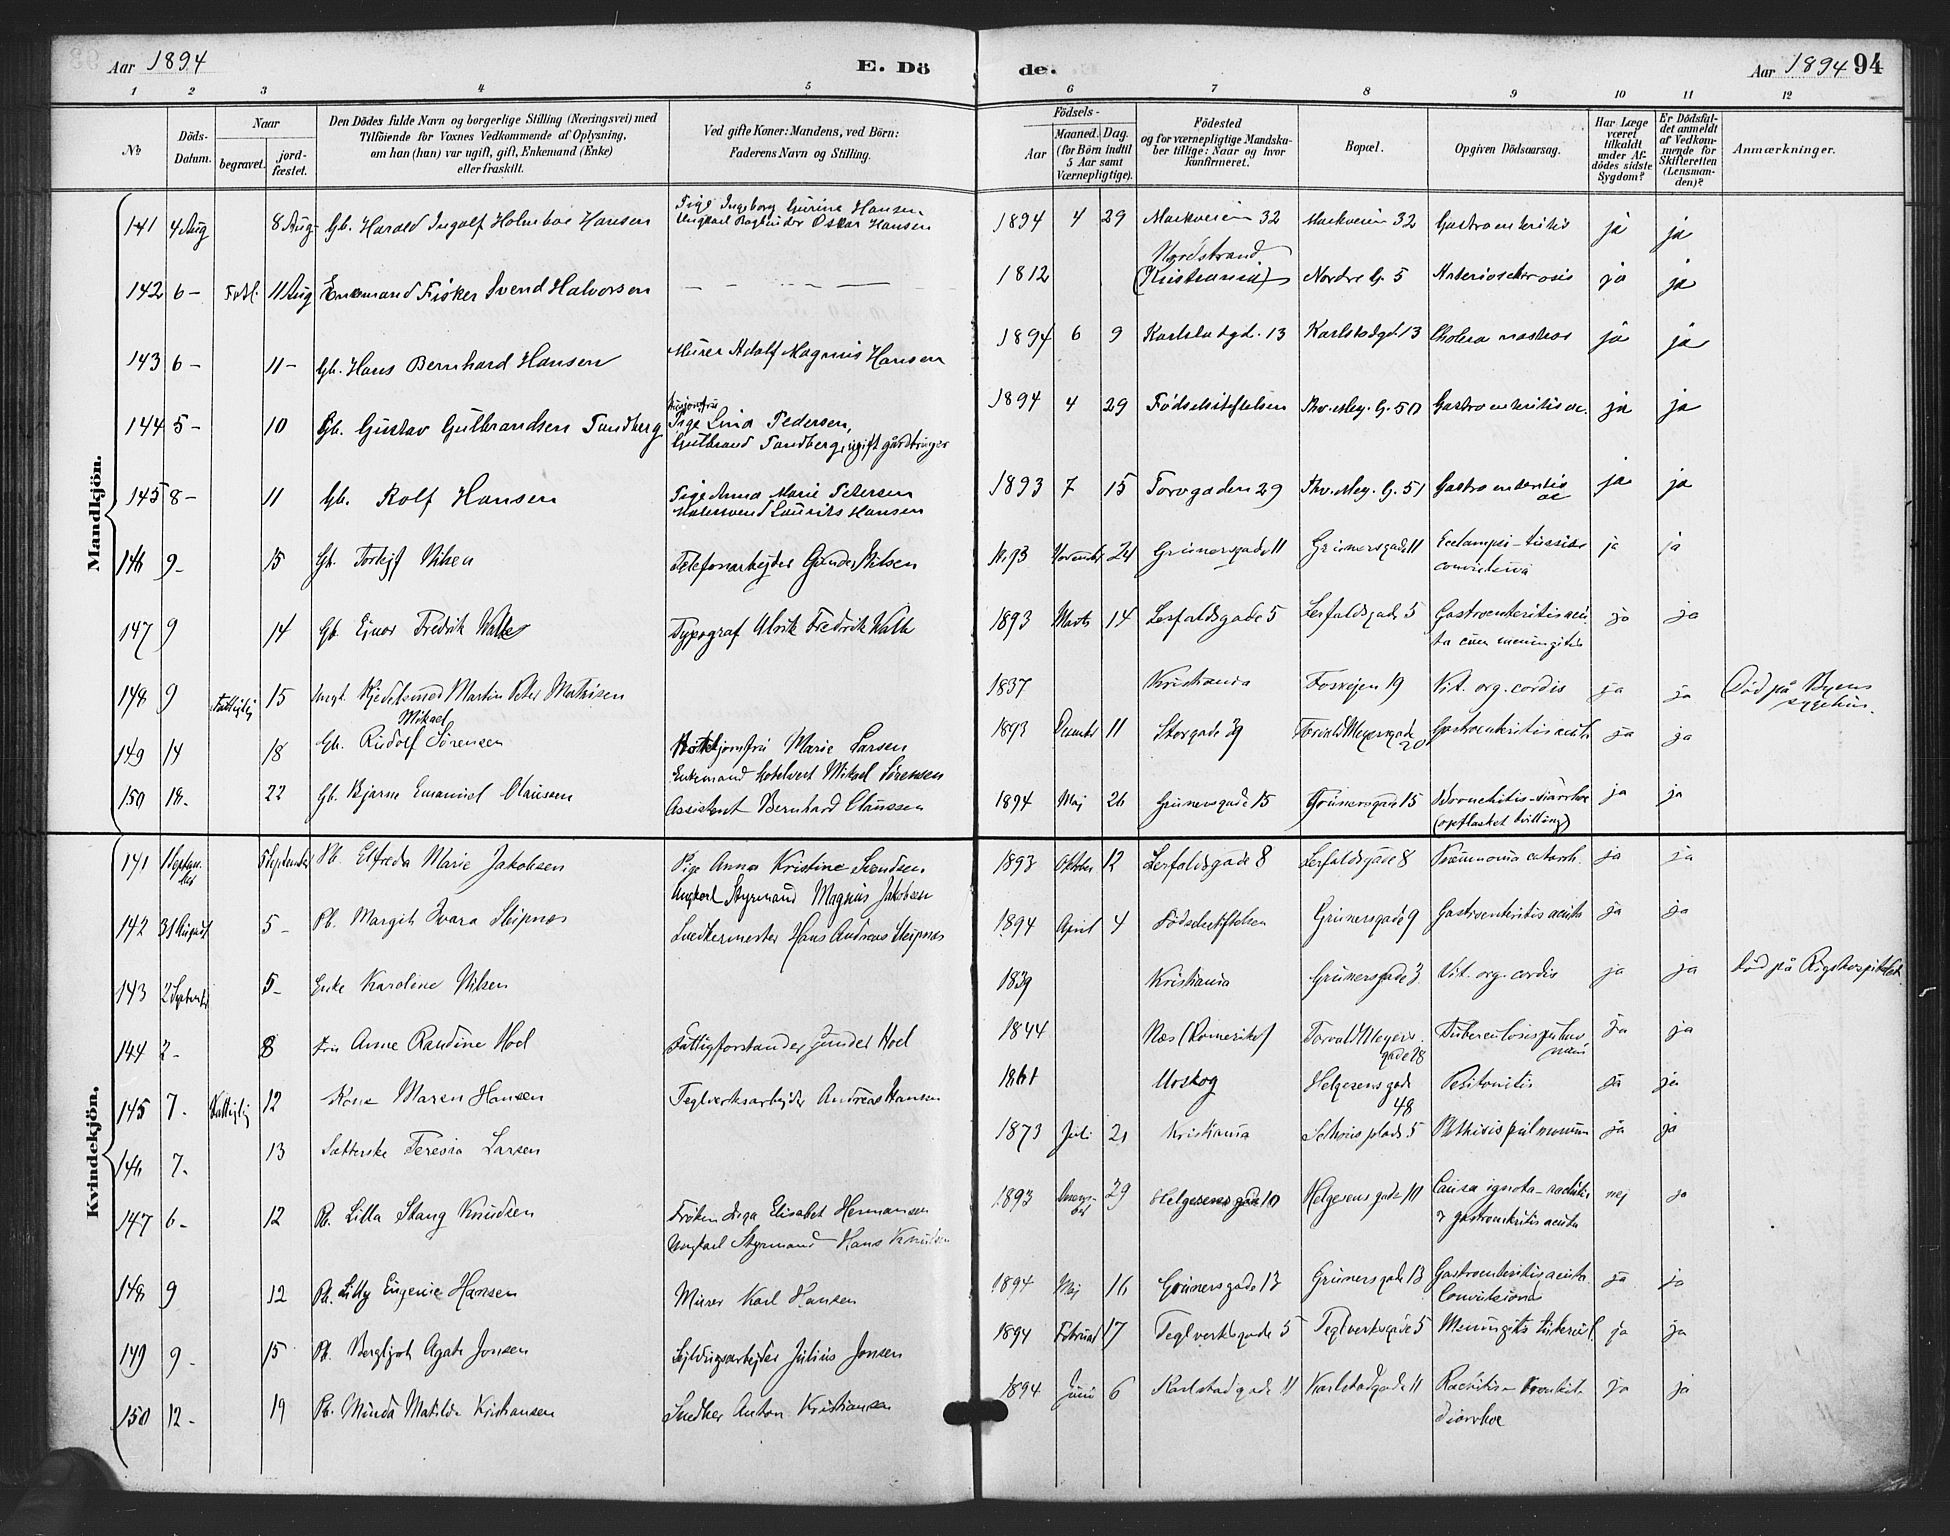 Aar 1894
E. Dö
de.
Aar 1894 94
1 2 3 4 5 6 7 8 9 10 11 12
№
Döds-
Datum.
Naar
begravet.
jord-
fæstet.
Den Dödes fulde Navn og borgerlige Stilling (Næringsvei) med
Tilföiende for Voxnes Vedkommende af Oplysning,
om han (hun) var ugift, gift, Enkemand (Enke)
eller fraskilt.
Ved gifte Koner: Mandens, ved Börn:
Faderens Navn og Stilling.
Födsels-
Aar
Maaned. Dag.
(for Börn indtil
5 Aar samt
Værnepligtige).
Födested
og for værnepligtige Mandska-
ber tillige: Naar og hvor
konfirmeret.
Bopæl.
Opgiven Dödsaarsag.
Har Læge
været
tilkaldt
under Af-
dödes sidste
Sygdom?
Er Dödsfal-
det anmeldt
af Vedkom-
mende for
Skifteretten
(Lensman-
den)?
Anmærkninger.
Mandkjön.
141 4 Aug 8 Aug Gb. Harald Ingolf Holmboe Hansen Pige Ingeborg Gurine Hansen 1894 4 29 Markveien 32 Markveien 32 Gastroenteritis ja ja
Ungkarl Oskar Hansen
142 6 – 11 Aug Enkemand Fisker Svend Halvorsen – – – – 1812 Nordstrand Nordre G. 5 Arteriosclerosis ja ja
(Kristiania)
143 6 – 11 – Gb. Hans Bernhard Hansen Murer Adolf Magnus Hansen 1894 6 9 Karlstadgd. 13 Karlstadgd. 13 Cholera nostras ja ja
144 5 – 10 Gb. Gustav Gulbrandsen Sandberg Pige Lina Pedersen, 1894 4 29 Födselsstiftelsen Thv. Mey. G. 50 Gastroenteritis ac. ja ja
Gulbrand Sandberg, ugift gårdbruger
145 8 – 11 Gb. Rolf Hansen Pige Anna Marie Petersen 1893 7 15 Torvgaden 29 Thv. Mey. G. 51 Gastroenteritis ja ja
Malersvend Laurits Hansen ac
146 9 – 15 Gb. Torleif Nilsen Telefonarbejder Gunder Nilsen 1893 November 24 Grünersgade 11 Grünersgade 11 Eclampsi – tussis ja ja
convulsiva
147 9 14 Gb. Ejnar Fredrik Typograf Ulrik Fredrik 1893 Marts 14 Lerfaldsgade 5 Lerfaldsgade 5 Gastroenteritis acu- ja ja
ta cum meningitis
148 9 Fattiglig 15 Ungk. Martin Peter Mathisen 1837 Kristiania Fossvejen 19 Vit. org. cordis ja ja Död på Byens
sygehus.
149 14 18 Gb. Rudolf Mikael Sörensen Hoteljomfru Marie Larsen 1893 December 11 Storgade 39 Torvald Meyersgade 20 Gastroenteritis acuta ja ja
Enkemand hotelvert Mikael Sörensen
150 18. 22 Gb. Bjarne Emanuel Clausen Assistent Bernhard Claussen 1894 Maj 26 Grünersgade 15 Grünersgade 15 Bronchitis – diarrhoe ja ja
(opflasket tvilling)
Kvindekjön.
141 1 September 7 September Pb. Elfreda Marie Jakobsen Pige Anna Kristine Svendsen 1893 Oktober 12 Lerfaldsgade 8 Lerfaldsgade 8 Pneumonia catarrh. ja ja
Ungkarl Styrmand Magnus Jakobsen
142 31 August 5 – Pb. Margit Ivara Stipnæs Snedkermester Hans Andreas Stipnæs 1894 April 4 Födselsstiftelsen Grünersgade 9 Gastroenteritis acuta ja ja
143 2 September 5 – Enke Karoline Nilsen 1839 Kristiania Grünersgade 3 Vit. org. cordis ja ja Död på Rigshospitalet
144 2 – 8 Fru Anne Randine Hoel Fattigforstander Gunder Hoel 1844 Næs (Romerike) Torvald Meyers- Tuberculosis pulmo- ja ja
gade 28 num
145 7. Fattiglig 12 Kone Maren Hansen Teglverksarbejder Andreas Hansen 1861 Urskog Helgesensgade Peritonitis ja ja
48
146 7. 13 Sætterske Teresia Larsen 1873 Juli 21 Kristiania Schous plads 5 Phthisis pulmonum ja ja
147 6 – 12 Pb. Lilla Stang Knudsen Fröken Elisabet Hermansen 1893 December 29 Helgesensgade 10 Helgesensgade 10 Causa ignota – rachitis nej ja
Ungkarl Styrmand Hans Knudsen & gastroenteritis acuta
148 9 12 Pb. Lilly Eugenie Hansen Murer Karl Hansen 1894 Maj 16 Grünersgade 13 Grünersgade 13 Gastroenteritis acuta ja ja
Convulsiones
149 9 – 15 Pb. Bergljot Agate Jonsen Sejldugsarbejder Julius Jonsen 1894 Februar 17 Teglverksgade 5 Teglverksgade 5 Meningitis tubercul. ja ja
150 12 – 19 Pb. Minda Matilde Kristiansen Snedker Anton Kristiansen 1894 Juni 6 Karlstadgade 11 Karlstadgade 11 Rachitis – bronkit ja ja
Diarrhoe